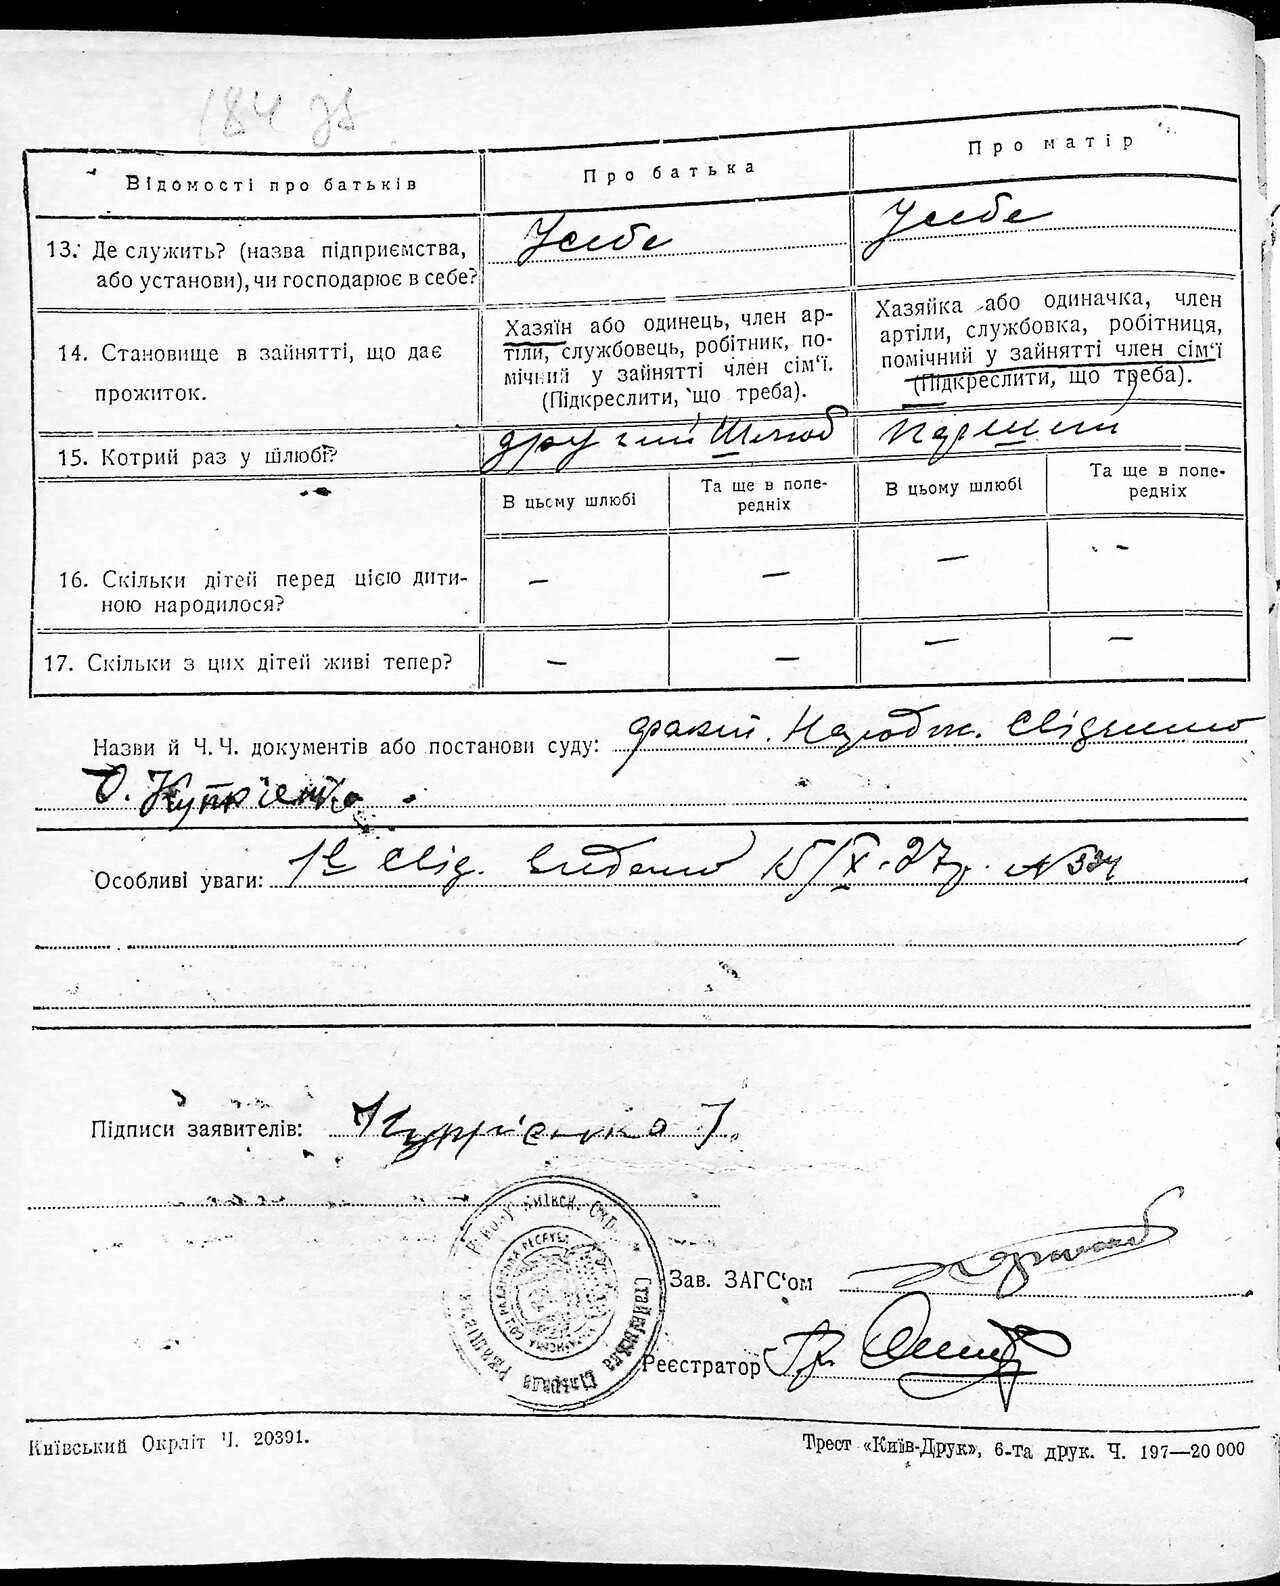 184 зв
Відомості про батьків
Про батька
Про матір
13. Де служить? (назва підприємства,
або установи), чи господарює в себе?
У себе
У себе
14. Становище в зайнятті, що дає
прожиток.
Хазяїн або одинець, член ар-
тіли, службовець, робітник, по-
мічний у зайнятті член сім‘ї.
(Підкреслити, що треба).
Хазяйка або одиначка, член
артіли, службовка, робітниця,
помічний у зайнятті член сім‘ї
(Підкреслити, що треба).
15. Котрий раз у шлюбі?
другий шлюб
перший
В цьому шлюбі
Та ще в попе-
редніх
В цьому шлюбі
Та ще в попе-
редніх
16. Скільки дітей перед цією дити-
ною народилося?
— — — —
17. Скільки з цих дітей живі тепер?
— — — —
Назви й Ч. Ч. документів або постанови суду: факт. Народж. Свідчить
О. Купрієнко.
Особливі уваги: Свід. видано 15/X-27р. № 334
Підписи заявителів: Купрієнко І.
Київськ. Окр.
Стайківська Сільрада Ржищівськ.
Зав. ЗАГС‘ом
Реєстратор
Київський Окрліт Ч. 20391.
Трест «Київ-Друк», 6-та друк. Ч. 197—20 000